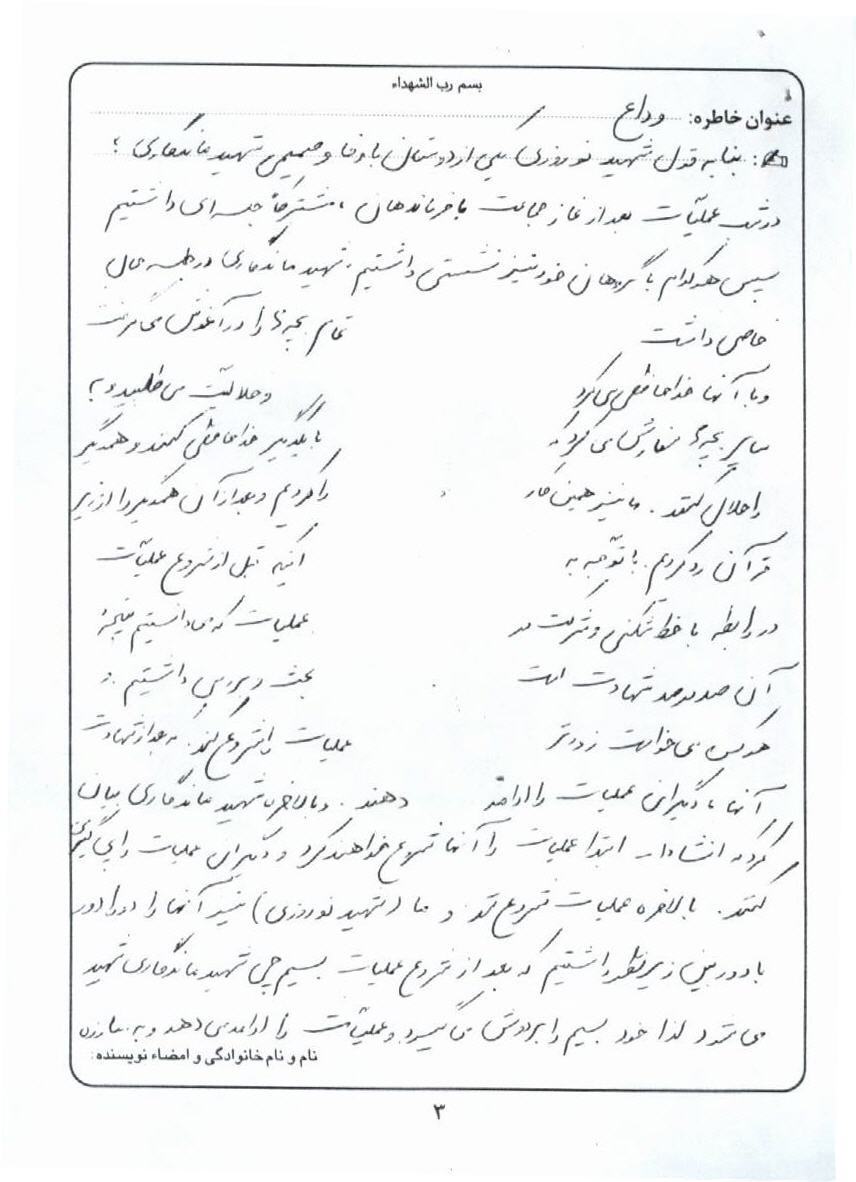 بسم رب الشهداء
عنوان خاطره: وداع
بنا به قول شهید نوروزی یکی از دوستان با وفا و صمیمی شهید ماندگاری ؛
در شب عملیّات بعد از نماز جماعت با فرماندهان ، مشترکاً جلسه ای داشتیم
سپس هر کدام با گروهان خود نیز نشستی داشتیم ، شهید ماندگاری در جلسه حال
خاصی داشت تمام بچه ها را در آغوش می گرفت
و با آنها خداحافظی می کرد و حلالیّت می طلبید و به
سایر بچه ها سفارش می کرد که با یکدیگر خداحافظی کنند و همدیگر
را حلال کنند . ما نیز همین کار را کردیم و بعد از آن همدیگر را از زیر
قرآن رد کردیم . با توّجه به اینکه قبل از شروع عملیّات
در رابطه با خط شکنی و شرکت در عملیات که می دانستیم نتیجه
آن صد در صد شهادت است بحث و بررسی داشتیم
هر کس می خواست زودتر عملیات را شروع کند . که بعد از شهادت
آنها دیگران عملیات را ادامه دهند . و بالاخره شهید ماندگاری بیان
کرد که انشاءا... ابتدا عملیات را آنها شروع خواهند کرد و دیگران عملیات را پی گیری
کنند . بالاخره عملیات شروع شد و ما (شهید نوروزی) نیز آنها را دورادور
با دوربین زیر نظر داشتیم که بعد از شروع عملیات بسیم چی شهید ماندگاری شهید
می شود لذا خود بسیم را بر دوش می گیرد و عملیّات را ادامه می دهد و به مبارزه
نام و نام خانوادگی و امضاء نویسنده:
۳